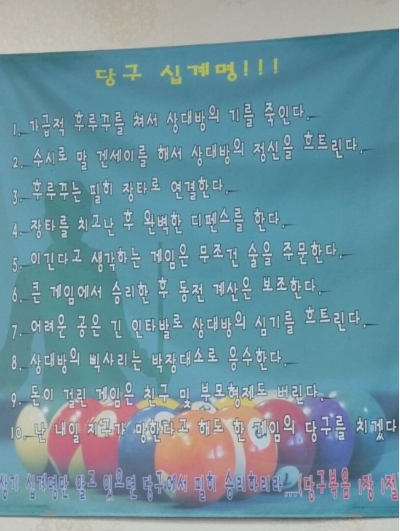 당구 십계명!!!
1. 가급적 후루꾸를 쳐서 상대방의 기를 죽인다.
2. 수시로 말 겐세이를 해서 상대방의 정신을 흐트린다.
3. 후루꾸는 필히 장타로 연결한다.
4. 장타를 치고난 후 완벽한 디펜스를 한다.
5. 이긴다고 생각하는 게임은 무조건 술을 주문한다.
6. 큰 게임에서 승리한 후 동전 계산은 보조한다.
7. 어려운 공은 긴 인타발로 상대방의 심기를 흐트린다.
8. 상대방의 삑사리는 박장대소로 응수한다.
9. 돈이 걸린 게임은 친구 및 부모형제도 버린다.
10. 난 내일 지구가 망한다고 해도 한 게임의 당구를 치겠다
상기 십계명만 알고 있으면 당구에서 필히 승리하리라...(당구복음 1장 1절